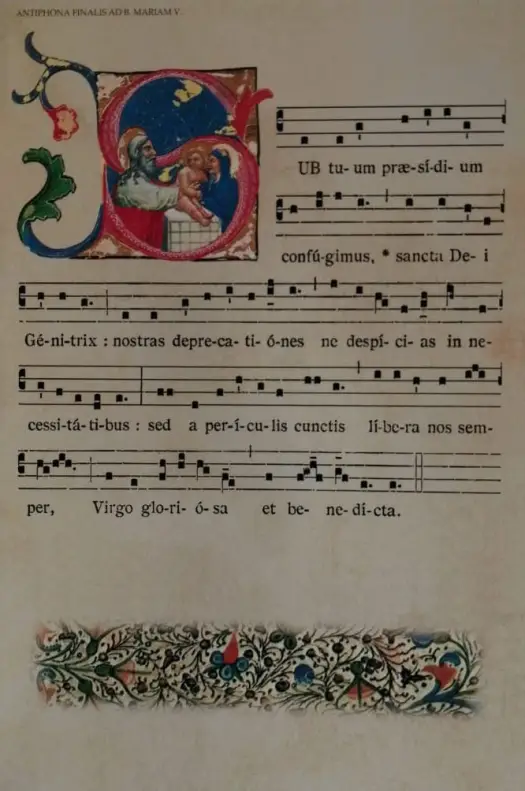 ANTIPHONA FINALIS AD B. MARIAM V.
SUB tu- um præ-sí-di- um
confú-gimus, * sancta De- i
Gé-ni-trix : nostras depre-ca- ti- ó-nes ne despí- ci- as in ne-
cessi-tá-ti-bus : sed a per-í-cu-lis cunctis lí-be-ra nos sem-
per, Virgo glo-ri- ó-sa et be- ne-dí-cta.